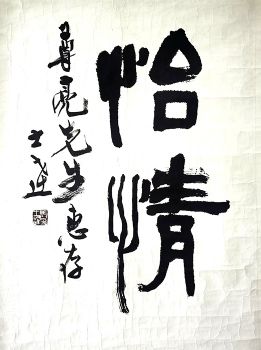 怡情
尊亮先生惠存